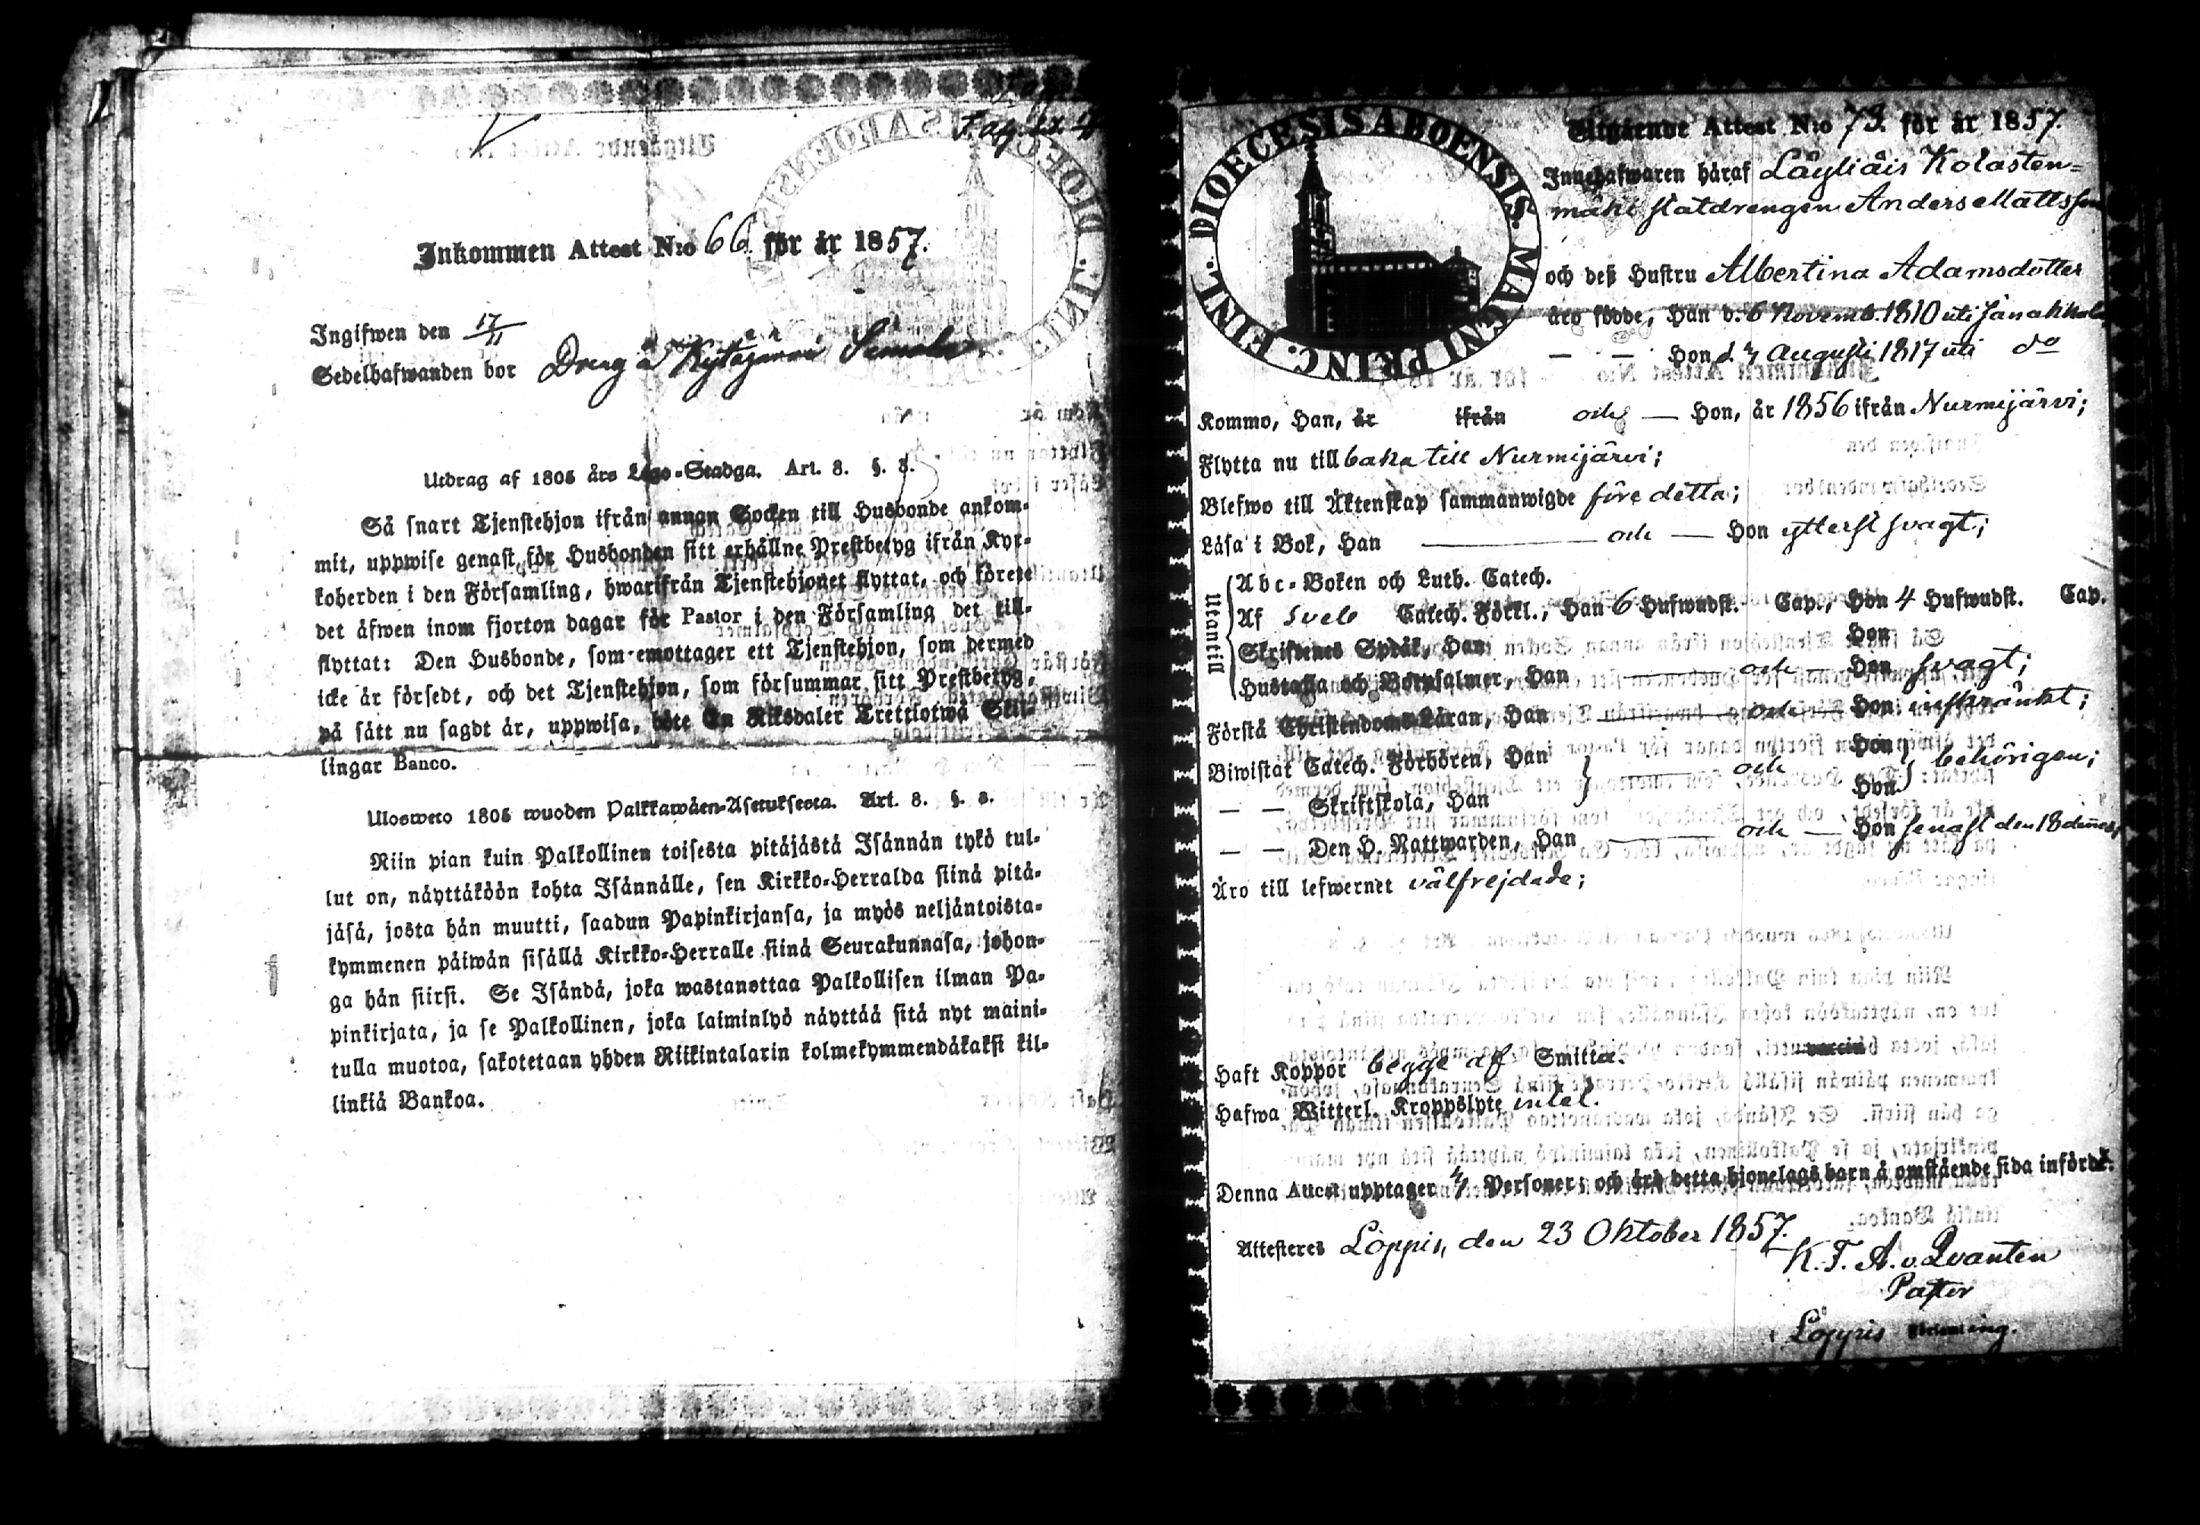 Inkommen Attest N:o 66 för år 1857.
Ingifwen den 17/11
Sedelhafwanden bor Dreng å Kytäjärvi Simola
Utdrag af 1805 års Lego-Stadga. Art. 8. §. 8.
Så snart Tjenstehjon ifrån annan Socken till Husbonde ankom-
mit, uppwise genast för Husbonden sitt erhållne Prestbetyg ifrån Kyr-
koherden i den Församling, hwarifrån Tjenstehjonet flyttat, och förete
det äfwen inom fjorton dagar för Pastor i den Församling det till-
flyttat: Den Husbonde, som emottager ett Tjenstehjon, som dermed
icke är försedt, och det Tjenstehjon, som försummar sitt Prestbetyg,
på sätt nu sagdt är, uppwisa, böte En Riksdaler Trettiotwå Skil-
lingar Banco.
Ulosweto 1805 wuoden Palkkawäen-Asetuksesta. Art. 8. §. 8.
Niin pian kuin Palkollinen toisesta pitäjästä Isännän tykö tul-
lut on, näyttäköön kohta Isännälle, sen Kirkko-Herralda siinä pitä-
jäsä, josta hän muutti, saadun Papinkirjansa, ja myös neljäntoista-
kymmenen päiwän sisällä Kirkko-Herralle siinä Seurakunnasa, johon-
ga hän siirsi. Se Isändä, joka wastanottaa Palkollisen ilman Pa-
pinkirjata, ja se Palkollinen, joka laiminlyö näyttää sitä nyt maini-
tulla muotoa, sakotetaan yhden Riikintalarin kolmekymmendäkaksi kil-
linkiä Bankoa.
DIOECESIS ABOENSIS. MAGNI PRINC. FINL.
Utgående Attest N:o 73 för år 1857.
Innehafwaren häraf Läyliäis Kolasten-
mäki statdrengen Anders Mattsson
och deß Hustru Albertina Adamsdotter
äro födde, Han d. 6 Novemb. 1810 uti Janakkala
— — Hon d. 7 Augusti 1817 uti do
Kommo, Han, år ifrån och — Hon, år 1856 ifrån Nurmijärvi;
Flytta nu tillbaka till Nurmijärvi;
Blefwo till Äktenskap sammanwigde före detta;
Läsa i Bok, Han — och — Hon ytterst svagt;
Utantill
Abc-Boken och Luth. Catech.
Af Sveb Catech. Förkl., Han 6 Hufwudst. Cap., Hon 4 Hufwudst. Cap.
Skriftenes Språk, Han Hon
Hustafla och Botpsalmer, Han — och — Hon svagt;
Förstå Christendoms Läran, Han — och — Hon inskränkt;
Biwistat Catech. Förhören, Han — och Hon behörigen;
— — Skriftskola, Han Hon
— — Den H. Nattwarden, Han — och — Hon senast den 18 dennes;
Äro till lefwernet välfrejdade;
Haft Koppor begge af Smitta.
Hafwa Witterl. Kroppslyte intet.
Denna Attest upptager 4 Personer; och äro detta hjonelags barn å omstående sida införde.
Attesteres Loppis, den 23 Oktober 1857.
K. F. A. v. Qvanten
Pastor
Loppis Församling.